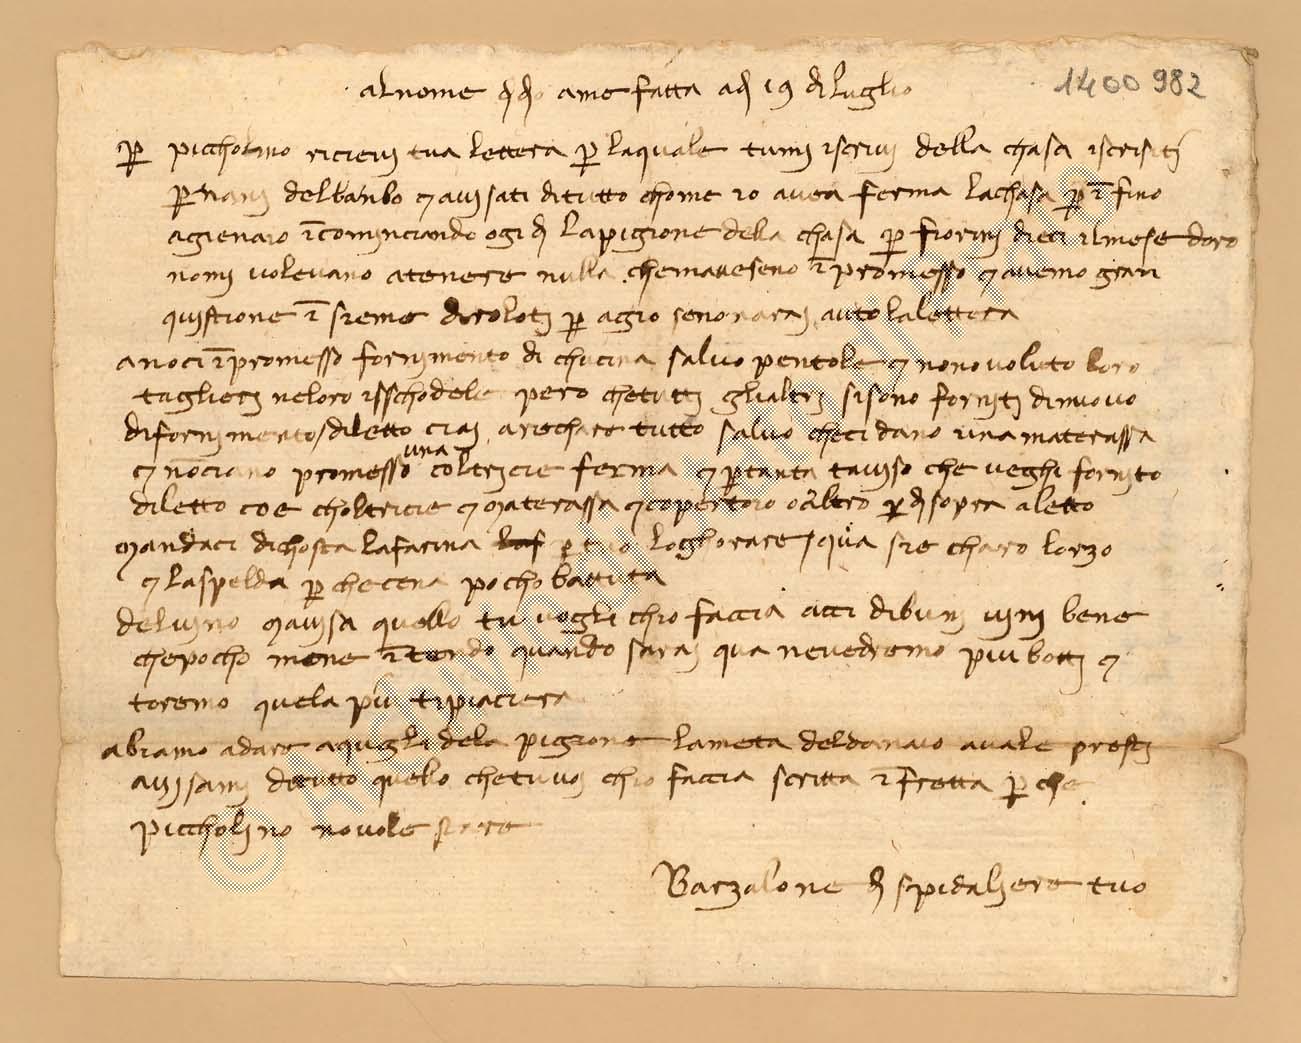 al nome di dio amen fatta adi 19 di luglio
1400 982
per piccholino ricievi tua lettera per laquale tumi iscrivi della chasa iscrisiti
per nani delbanbo e avisati ditutto chome io avea ferma lachasa per in fino
agienaio incominciando ogi di lapigione della chasa per fiorini dieci ilmese doro
nomi volevano atenere nulla chemaveseno inpromesso e avemo gran
quistione insieme per agio senonarai auto lalettera
anoci inpromesso fornimento di chucina salvo pentole e nonovoluto loro
taglieri neloro ischodele pero chetutti glialtri sisono forniti dinuovo
difornimento diletto ciai arechare tutto salvo checi dano una materassa
e nociano promesso una coltricie ferma e pertanta taviso che veghi fornito
diletto coe choltricie e materassa e copertoio o altro per disopra aletto
mandaci dichosta lafarina per tuo loghorare qua sie charo lorzo
e laspelda per checena pocho battuta
delvino mavisa quello tu vogli chio faccia acci dibuni vini bene
chepocho mene intendo quando sarai qua nevedremo piu botti e
toremo quela piu tipiaciera
abiamo adare aquegli dela pigione lameta deldanaio avale presti
avisami ditutto quelo chetuvoi chio faccia scritta infretta per che
piccholino novole stare
Barzalone di spidaliere tuo